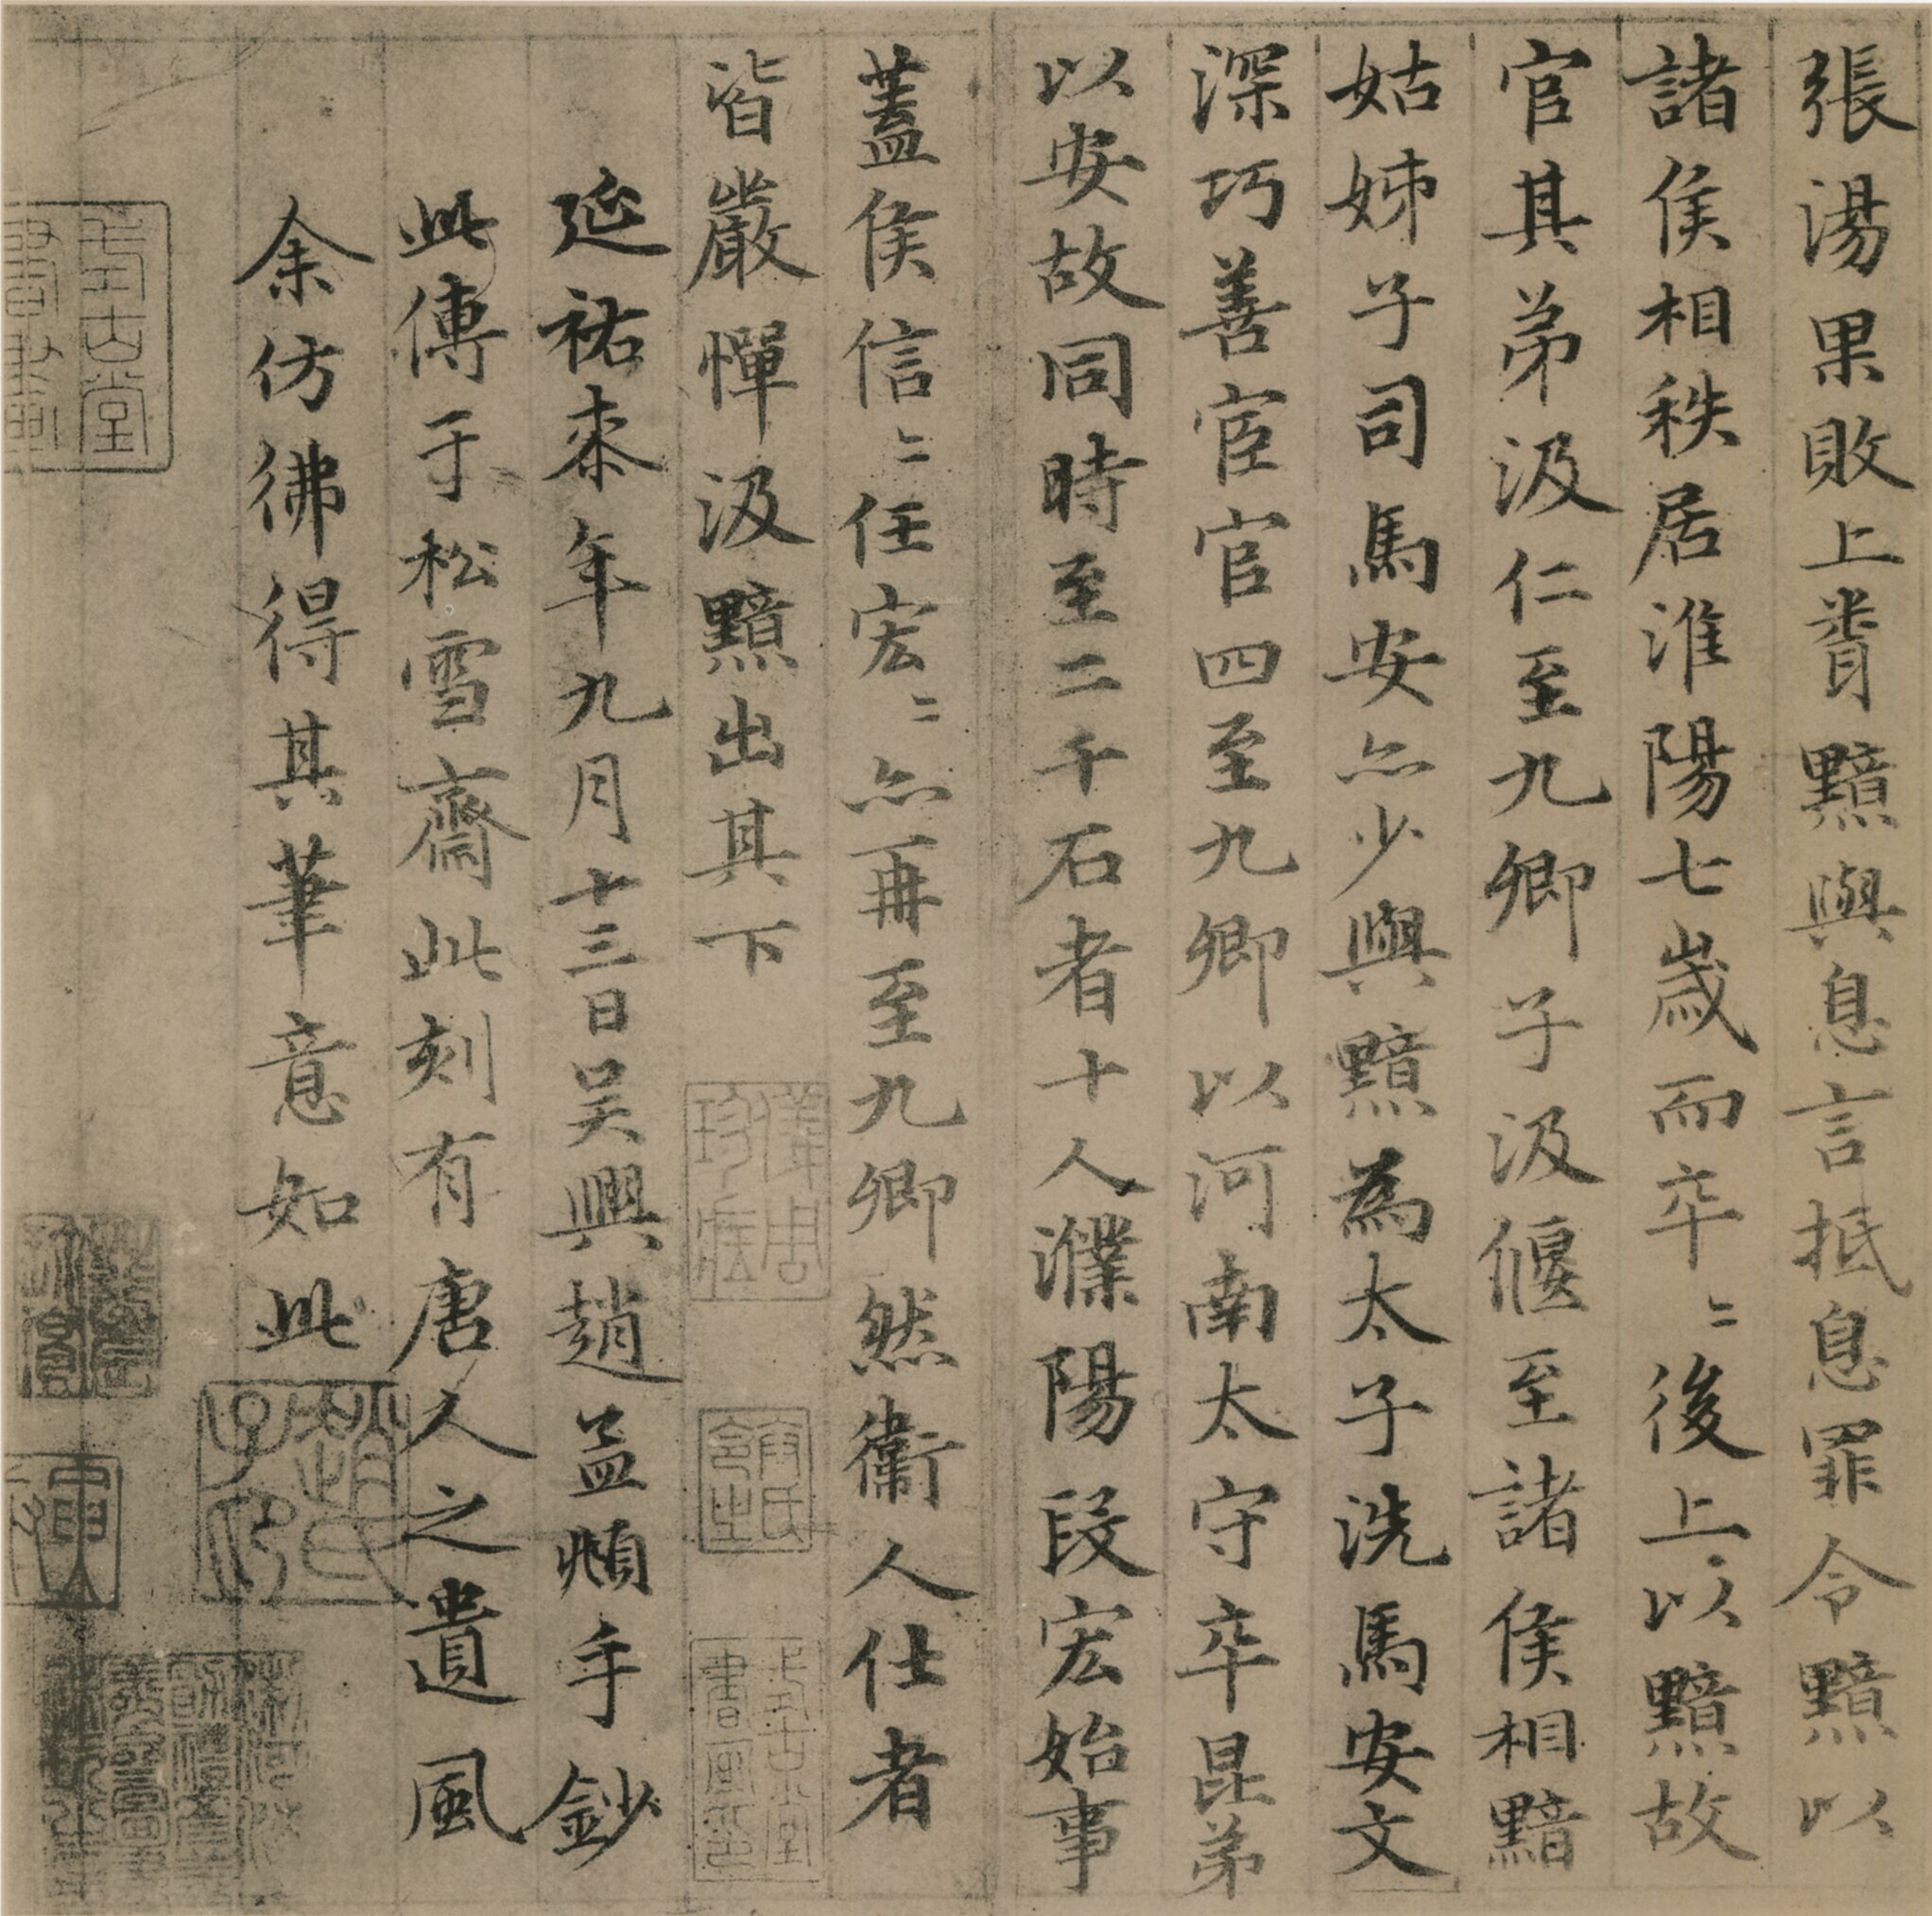 張湯果敗上聞黯與息言抵息罪令黯以
諸侯相秩居淮陽七歲而卒〻後上以黯故
官其弟汲仁至九卿子汲偃至諸侯相黯
姑姊子司馬安亦少與黯為太子洗馬安文
深巧善宦官四至九卿以河南太守卒昆弟
以安故同時至二千石者十人濮陽段宏始事
蓋侯信〻任宏〻亦再至九卿然衛人仕者
皆嚴憚汲黯出其下
延祐桼年九月十三日吳興趙孟頫手鈔
此傳于松雪齋此刻有唐人之遺風
余仿彿得其筆意如此
趙氏子昂